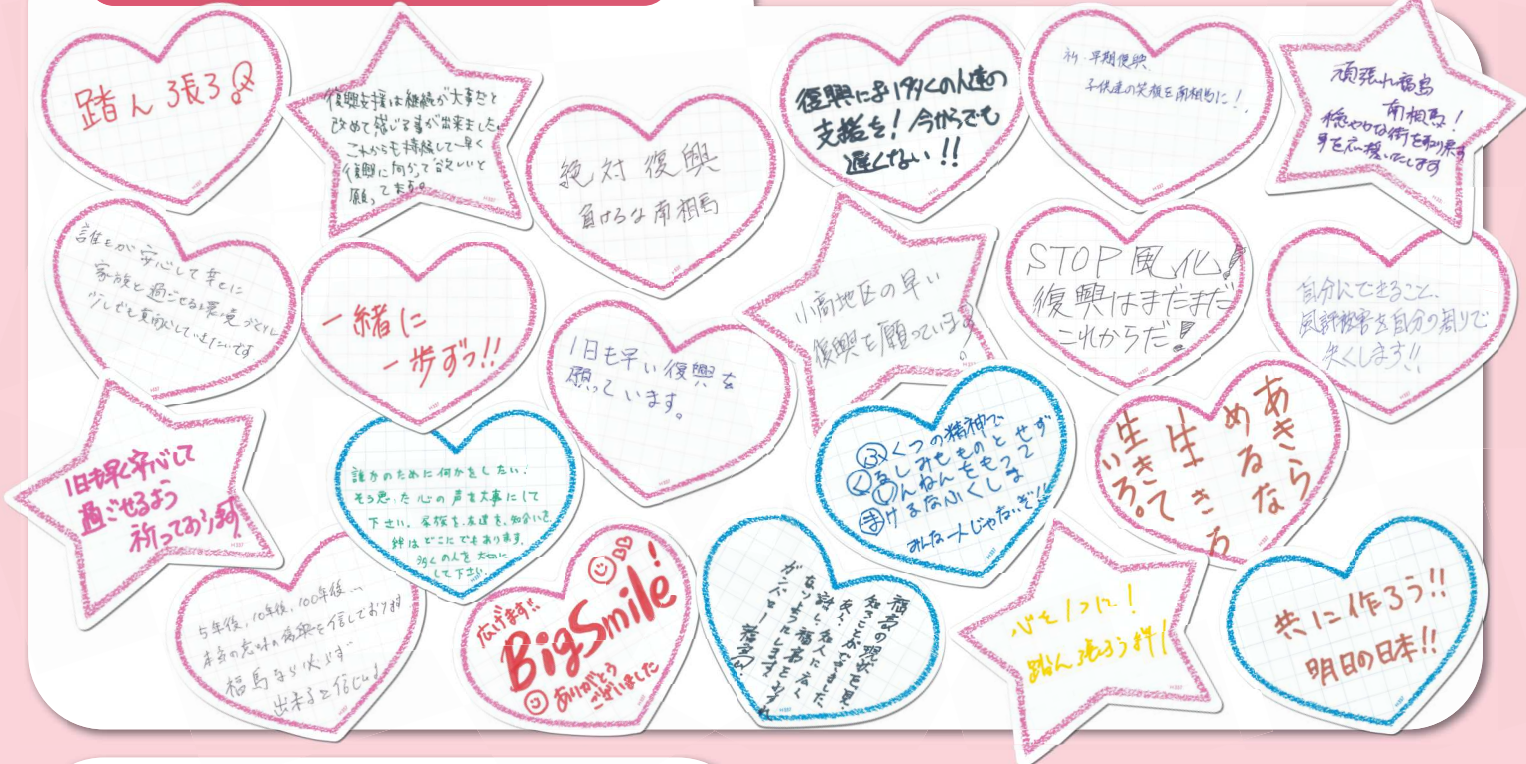 踏ん張ろ
復興支援は継続が大事だと
改めて感じる事が出来ました。
これからも持続して早く
復興に向かって欲しいと
願ってます。
絶対復興
負けるな南相馬
復興により多くの人達の
支援を！今からでも
遅くない!!
祈・早期復興
子供達の笑顔を南相馬に！
頑張れ福島
南相馬！
穏やかな街を取り戻す
事を応援いたします
誰もが安心して幸せに
家族と過ごせる環境づくりに
少しでも
一緒に
一歩ずつ!!
1日も早い復興を
願っています。
小高地区の早い
復興を願っています。
STOP風化！
復興はまだまだ
これからだ！
自分にできること、
風評被害を自分の周りで
失くします!!
1日も早く安心して
過ごせるよう
祈っております
誰かのために何かをしたい。
そう思った心の声を大事にして
下さい。家族を、友達を、知合いを
絆はどこにでもあります。
多くの人を大切に
して下さい。
ふくつの精神で
くるしみをものとせず
しんねんをもって
まけるなふくしま
みんな一人じゃないぞ!!
あきらめるな
生きろ
生きて
いろ。
5年後、10年後、100年後...
本当の意味の復興を信じております
福島なら必ず
出来ると信じてます
広げます!!
BigSmile!
ありがとう
ございました
福島の現状を見、
知ることができました。
友人、知人に広く
話し、福島を
ガンバロー福島
心を1つに！
踏ん張ろう絆！
共に作ろう!!
明日の日本!!